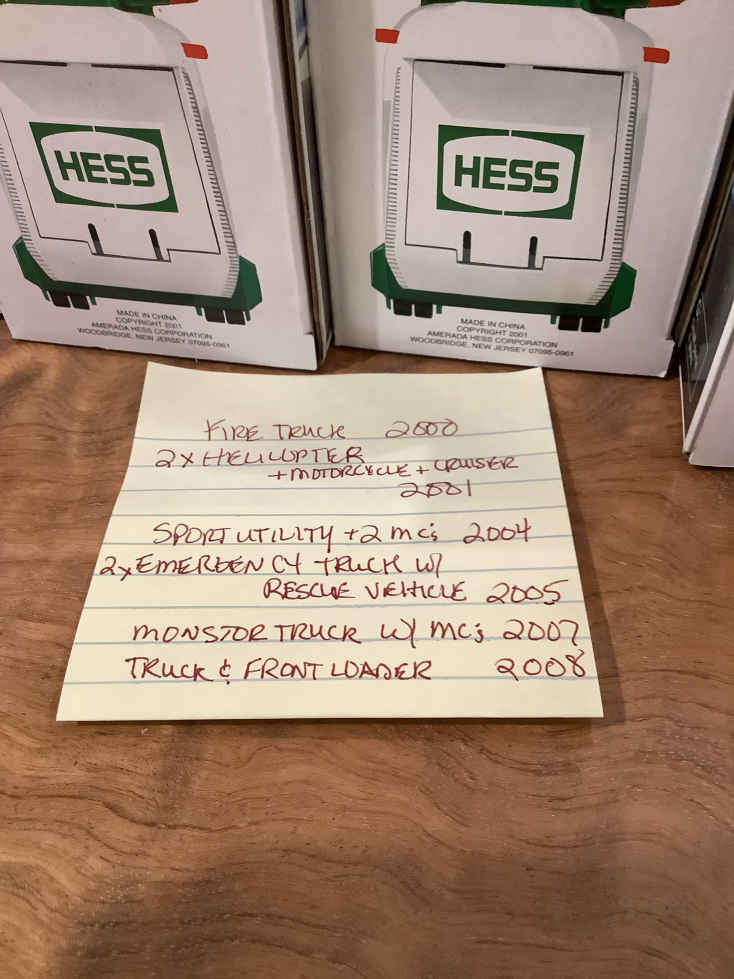 HESS
MADE IN CHINA
COPYRIGHT 2001
AMERADA HESS CORPORATION
WOODBRIDGE, NEW JERSEY 07095-0961
HESS
MADE IN CHINA
COPYRIGHT 2001
AMERADA HESS CORPORATION
WOODBRIDGE, NEW JERSEY 07095-0961
FIRE TRUCK 2000
2x HELICOPTER
+ MOTORCYCLE + CRUISER
2001
SPORT UTILITY +2 MC's 2004
2x EMERGENCY TRUCK W/
RESCUE VEHICLE 2005
MONSTOR TRUCK W/ MC's 2007
TRUCK & FRONT LOADER 2008